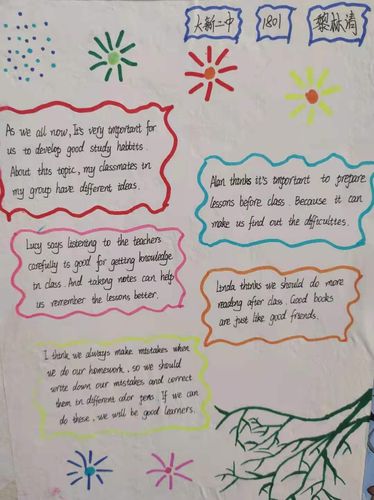 大新二中 1801 黎林清
As we all now, It's very important for
us to develop good study habbits.
About this topic, my classmates in
my group have different ideas.
Alan thinks it's important to prepare
lessons before class. Because it can
make us find out the difficulties.
Lucy says listening to the teachers
carefully is good for getting knowledge
in class. And taking notes can help
us remember the lessons better.
Linda thinks we should do more
reading after class. Good books
are just like good friends.
I think we always make mistakes when
we do our homework, so we should
write down our mistakes and correct
them in different color pens. If we can
do these, we will be good learners.